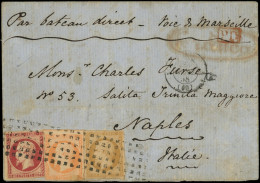 Par bateau direct - Voie de Marseille
Monsr. Charles Furse
No 53. Salita Trinita Maggiore
Naples
Italie.